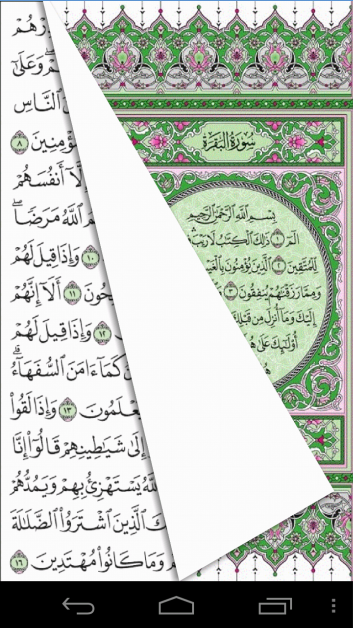 سُورَةُ البَقَرَةِ
بِسْمِ ٱللَّهِ ٱلرَّحْمَٰنِ ٱلرَّحِيمِ
الٓمٓ ١ ذَٰلِكَ ٱلْكِتَٰبُ لَا رَيْبَ
لِّلْمُتَّقِينَ ٢ ٱلَّذِينَ يُؤْمِنُونَ بِٱلْغَيْبِ
وَمِمَّا رَزَقْنَٰهُمْ يُنفِقُونَ ٣
إِلَيْكَ وَمَآ أُنزِلَ مِن قَبْلِكَ
أُو۟لَٰٓئِكَ عَلَىٰ
وَعَلَىٰٓ
ٱلنَّاسِ
٨
أَنفُسَهُمْ
ٱللَّهُ مَرَضًا ۖ
١٠ وَإِذَا قِيلَ لَهُمْ
١١ أَلَآ إِنَّهُمْ
١٢ وَإِذَا قِيلَ لَهُمْ
كَمَآ ءَامَنَ ٱلسُّفَهَآءُ ۗ
١٣ وَإِذَا لَقُوا۟
إِلَىٰ شَيَٰطِينِهِمْ قَالُوٓا۟ إِنَّا
يَسْتَهْزِئُ بِهِمْ وَيَمُدُّهُمْ
ٱلَّذِينَ ٱشْتَرَوُا۟ ٱلضَّلَٰلَةَ
وَمَا كَانُوا۟ مُهْتَدِينَ ١٦